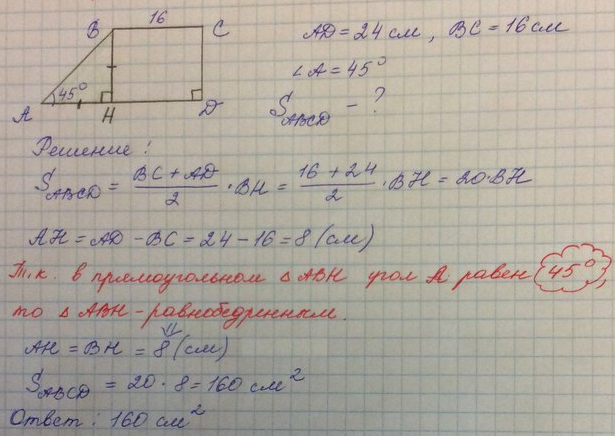 16
B C
45°
A H D
AD = 24 см, BC = 16 см
∠A = 45°
S_ABCD - ?
Решение:
S_ABCD = (BC + AD)/2 · BH = (16 + 24)/2 · BH = 20 · BH
AH = AD - BC = 24 - 16 = 8 (см)
Т.к. в прямоугольном △ABH угол A равен 45°,
то △ABH - равнобедренным.
⇓
AH = BH = 8 (см)
S_ABCD = 20 · 8 = 160 см²
Ответ: 160 см²